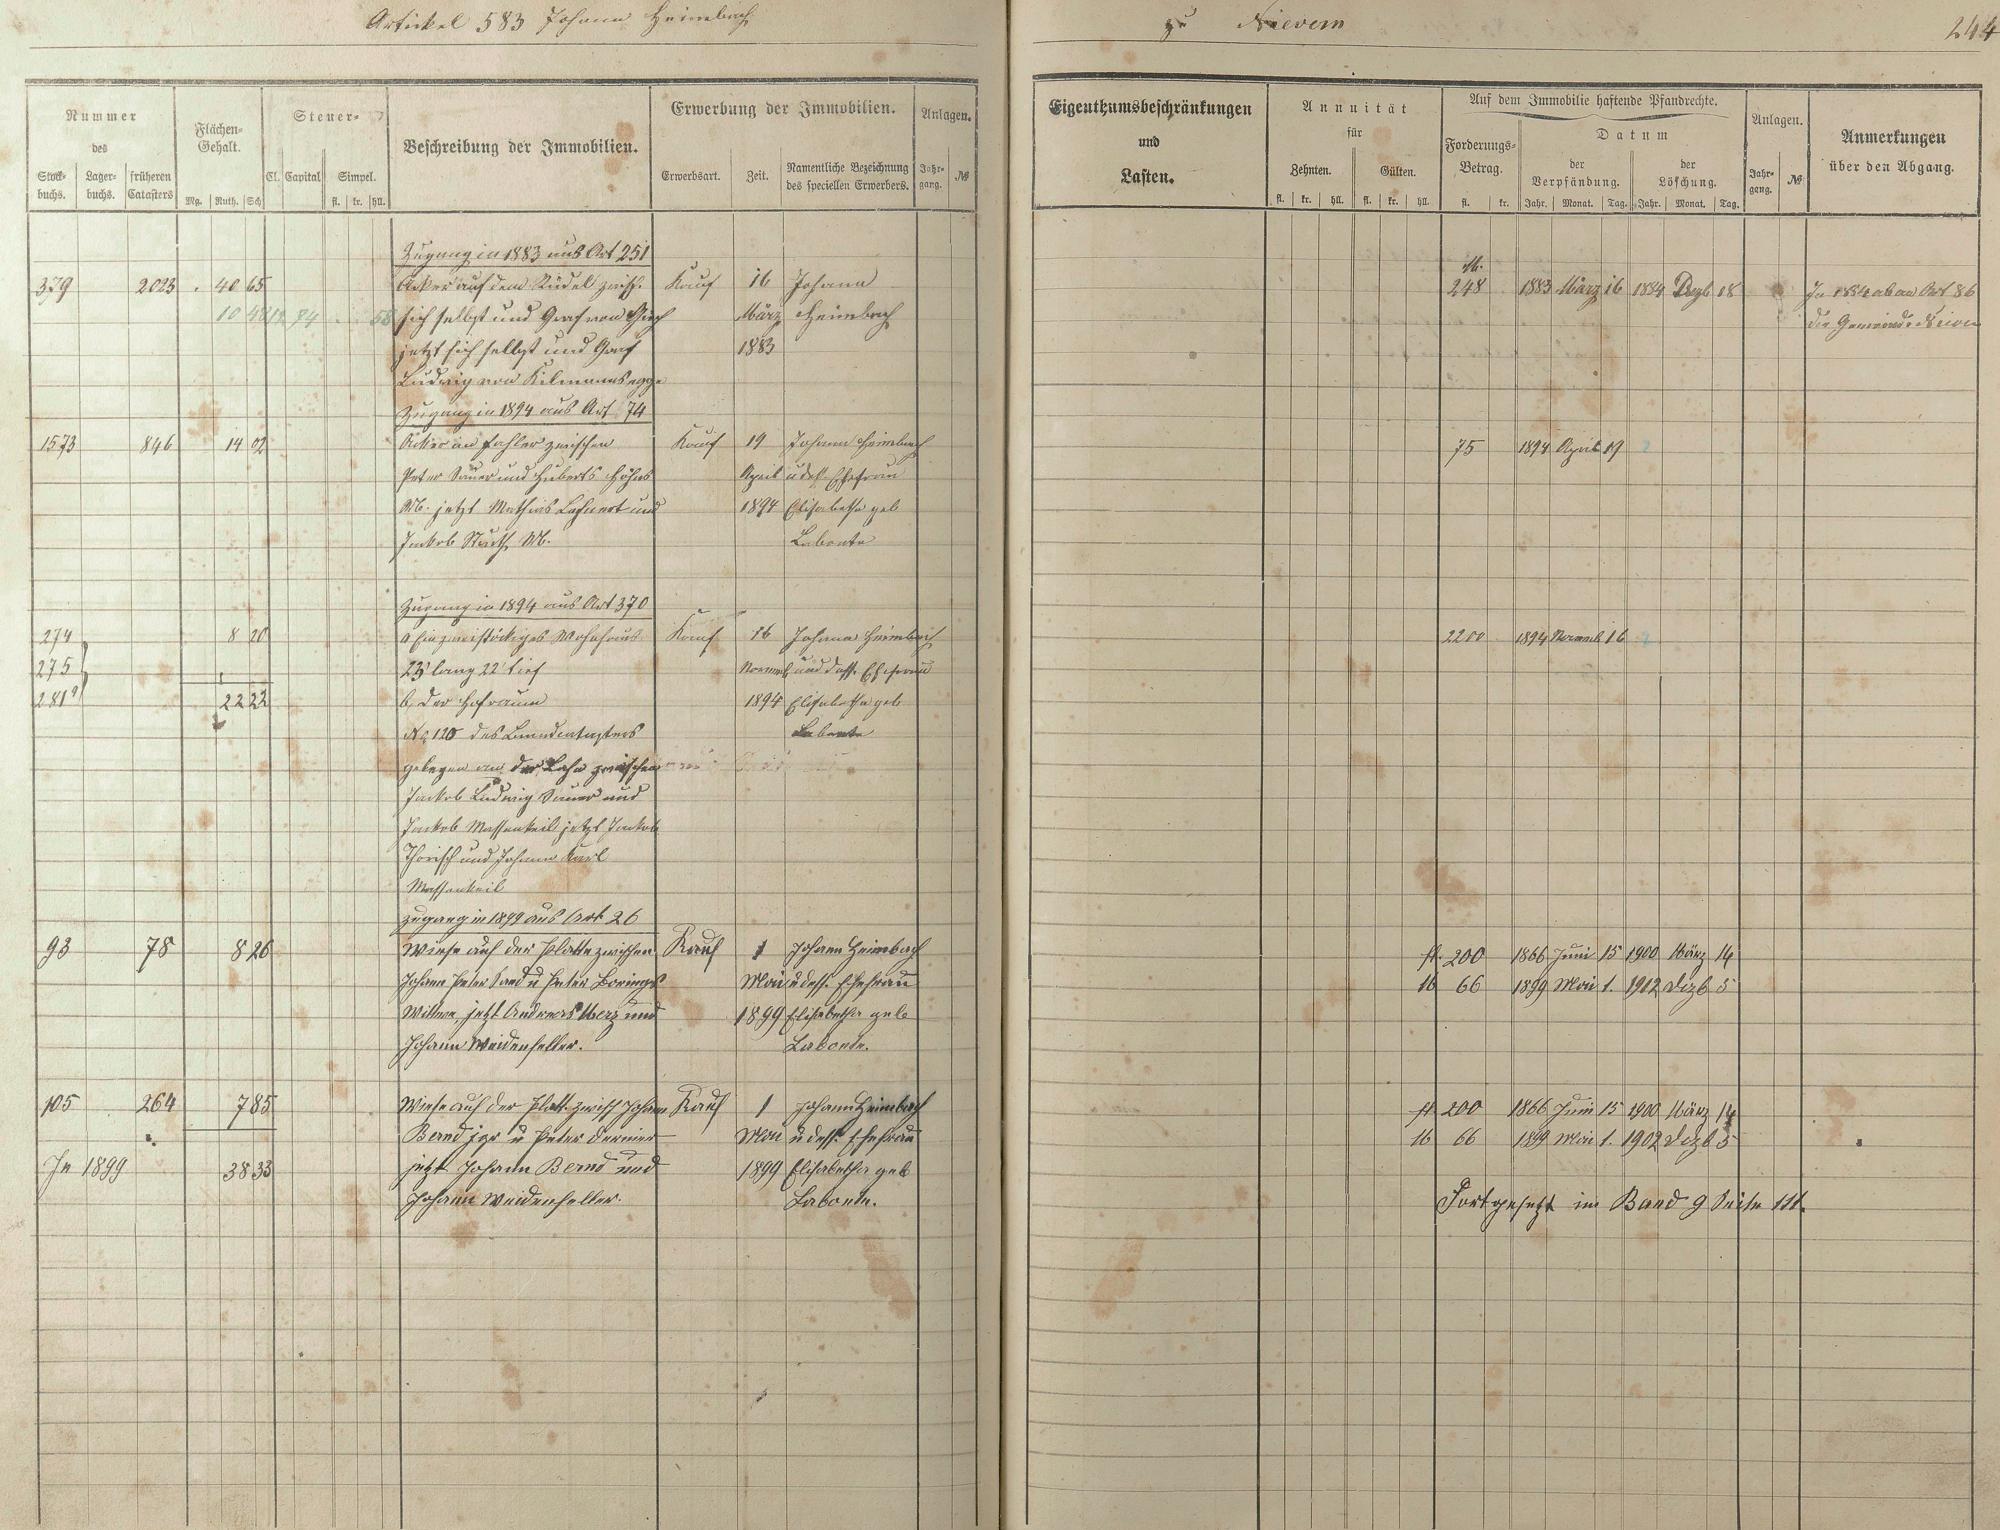 Artickel 583 Johann Heimbach
zu Nievern
244
Nummer
des
Stock-buchs.
Lager-buchs.
früheren Catasters
Flächen-Gehalt.
Mg. Ruth. Sch
Steuer-
Cl. Capital Simpel.
fl. kr. hll.
Beschreibung der Immobilien.
Erwerbung der Immobilien.
Erwerbsart. Zeit. Namentliche Bezeichnung des speciellen Erwerbers.
Anlagen.
Jahr-gang. №
Eigenthumsbeschränkungen
und
Lasten.
Annuität
für
Zehnten. Gülten.
fl. kr. hll. fl. kr. hll.
Auf dem Immobilie haftende Pfandrechte.
Forderungs-Betrag.
fl. kr.
Datum
der Verpfändung. der Löschung.
Jahr. Monat. Tag. Jahr. Monat. Tag.
Anlagen.
Jahr-gang. №
Anmerkungen
über den Abgang.
Zugang in 1883 aus Art 251
M.
379 2023 40 65 Acker auf dem Rüdel zwisch. Kauf 16 Johann 248 1883 März 16 1884 Dezb 18 In 1884 ab an Art 86
10 48 sich selbst und Graf von März Heimbach die Gemeinde
jetzt sich selbst und Graf 1883
Ludwig von Kilmannsegge
Zugang in 1894 aus Art 74
1573 846 14 02 Acker zwischen Kauf 19 Johann Heimbach 75 1894 April 19
Peter Sauer und Huberts Höhns April u deß. Ehefrau
M. jetzt Mathias Lehnert und 1894 Elisabetha geb
Jakob M. Labonte
Zugang in 1894 aus Art 370
274 8 20 a Ein zweistöckiges Wohnhaus Kauf 16 Johann Heimbach 2200 1894 Novemb 16
275 23' lang 22' tief Novemb und dess. Ehefrau
281 22 22 b, der Hofraum 1894 Elisabetha geb
No 120 des Brandcatasters Labonte
gelegen an der Lahn zwischen
Jakob Ludwig Sauer und
Jakob Massenkeil jetzt Jakob
Thorisch und Johann Karl
Massenkeil
Zugang in 1899 aus Art 26
93 78 8 26 Wiese auf der Platte zwischen Kauf 1 Johann Heimbach fl. 200 1866 Juni 15 1900 März 14
Johann Peter Sand u Peter Mai u dess. Ehefrau M 66 1899 Mai 1. 1902 Dezb 5
Wittwe, jetzt Andreas Merz und 1899 Elisabetha geb
Johann Weidenfeller. Labonte.
105 264 7 85 Wiese auf der Platt. zwisch Johann Kauf 1 Johann Heimbach fl 200 1866 Juni 15 1900 März 14
Bernd jgr u Peter Mai u dess. Ehefrau M 66 1899 Mai 1. 1902 Dezb 5
In 1899 38 33 jetzt Johann Bernd und 1899 Elisabetha geb
Johann Weidenfeller. Labonte.
Fortgesetzt im Band 9 Seite 111.